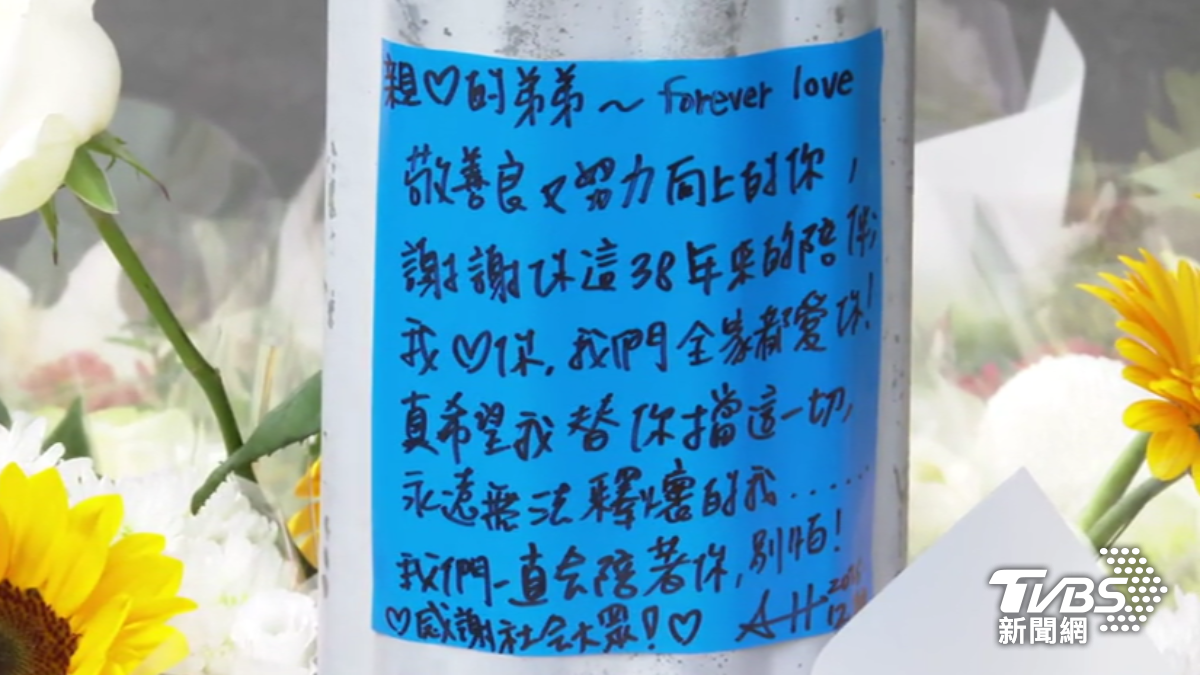 親♡的弟弟~ forever love
敬善良又努力向上的你，
謝謝你這38年來的陪伴;
我♡你,我們全家都愛你!
真希望我替你擋這一切,
永遠無法釋懷的我......
我們一直会陪著你,別怕!
♡感謝社会大眾!♡ AH
TVBS
新聞網